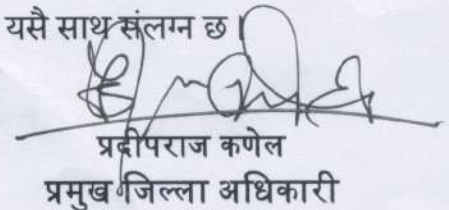 यसै साथ संलग्न छ।
प्रदीपराज कणेल
प्रमुख जिल्ला अधिकारी